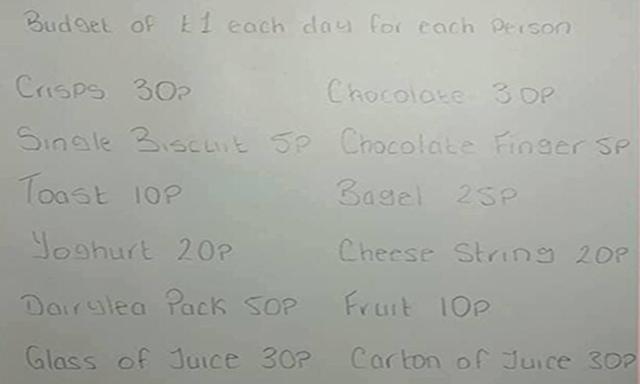 Budget of £1 each day for each person
Crisps 30P Chocolate 30P
Single Biscuit 5P Chocolate Finger 5P
Toast 10P Bagel 25P
Yoghurt 20P Cheese String 20P
Dairylea Pack 50P Fruit 10P
Glass of Juice 30P Carton of Juice 30P